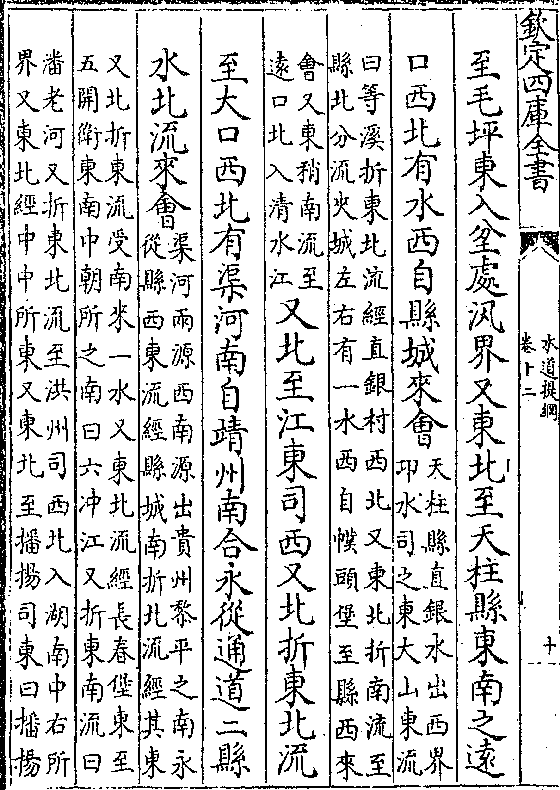 欽定四庫全書
水道提綱
卷十二
十
至毛坪東入坌處汛界又東北至天柱縣東南之遠
口西北有水西自縣城來會
天柱縣直銀水出西界
卭水司之東大山東流
曰等溪折東北流經直銀村西北又東北折南流至
縣北分流夾城左右有一水西自幞頭堡至縣西來
會又東稍南流至
遠口北入清水江
又北至江東司西又北折東北流
至大口西北有渠河南自靖州南合永從通道二縣
水北流來會
渠河兩源西南源出貴州黎平之南永
從縣西東流經縣城南折北流經其東
又北折東流受南來一水又東北流經長春堡東至
五開衛東南中朝所之南曰六冲江又折東南流曰
潘老河又折東北流至洪州司西北入湖南中右所
界又東北經中中所東又東北至播揚司東曰播揚